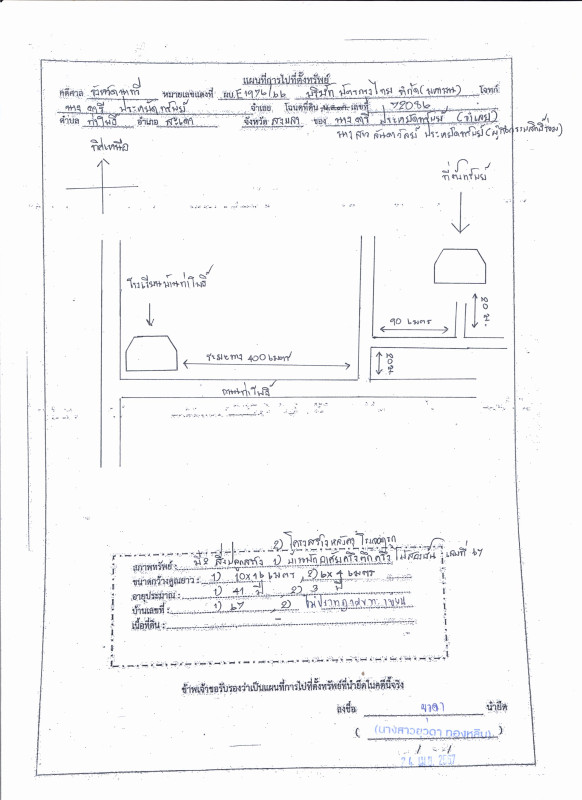 แผนที่การไปที่ตั้งทรัพย์
คดีศาล จังหวัดนาทวี หมายเลขแดงที่ ผบ.E1976/66 บริษัท โจทก์
นาง ประหยัดทรัพย์ จำเลย โฉนดที่ดิน เลขที่ 72086
ตำบล ท่าโพธิ์ อำเภอ สะเดา จังหวัด สงขลา ของ นาง ประหยัดทรัพย์ (จำเลย)
นางสาว ประหยัดทรัพย์
ทิศเหนือ
ที่ตั้งทรัพย์
โรงเรียนบ้านท่าโพธิ์
90 เมตร
20 ม.
ระยะทาง 400 เมตร
ถนนท่าโพธิ์
2) โครงสร้างหลังคา
สภาพทรัพย์ : มี 2 สิ่งปลูกสร้าง 1) บ้านพักอาศัยครึ่งตึกครึ่งไม้ เลขที่ 67
ขนาดกว้างคูณยาว : 1) 10x16 เมตร, 2) 6x4 เมตร
อายุประมาณ : 1) 41 ปี 2) 3 ปี
บ้านเลขที่ : 1) 67 2) ไม่ปรากฏเลขทะเบียน
เนื้อที่ดิน : -
ข้าพเจ้าขอรับรองว่าเป็นแผนที่การไปที่ตั้งทรัพย์ที่นำยึดในคดีนี้จริง
ลงชื่อ ยุวดา นำยึด
( (นางสาวยุวดา ทองหลิม) )
24 เม.ย. 2567